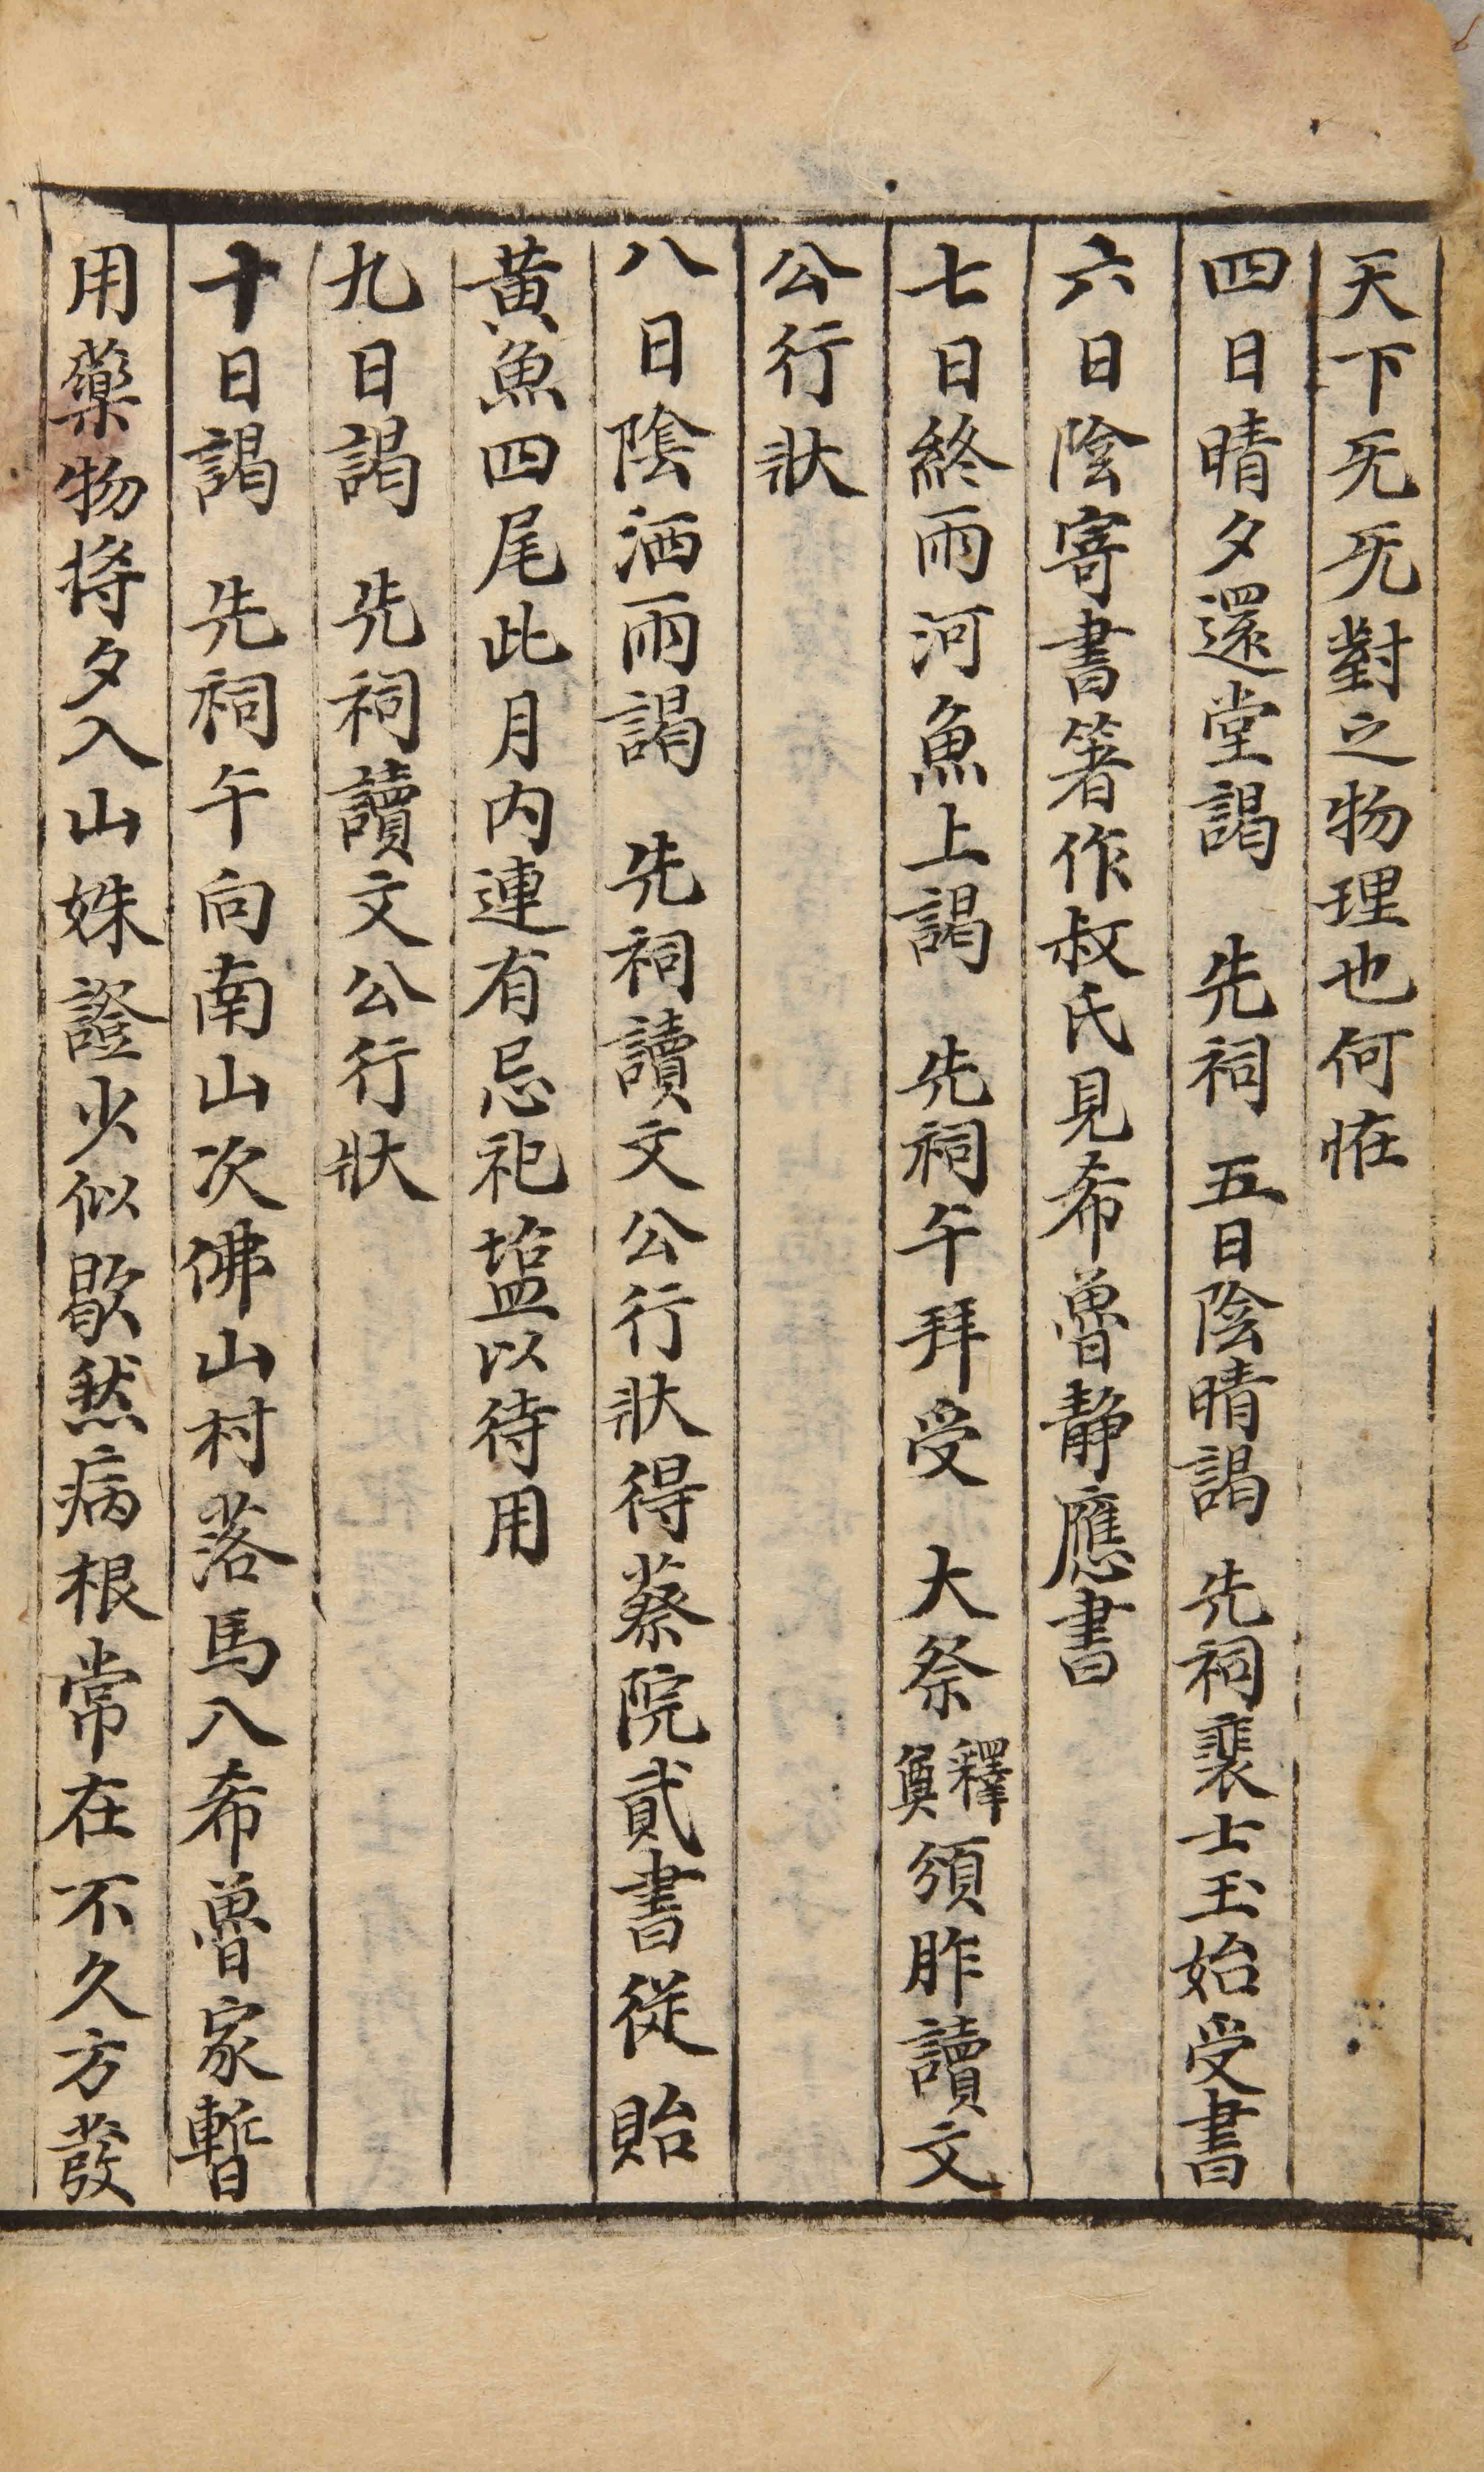 天下无无對之物理也何恠
四日晴夕還堂謁　先祠　五日陰晴謁　先祠裴士玉始受書
六日陰寄書著作叔氏見希魯静應書
七日終雨河魚上謁　先祠午拜受　大祭釋奠頒胙讀文
公行狀
八日陰洒雨謁　先祠讀文公行狀得蔡院貳書從貽
黄魚四尾此月内連有忌祀塩以待用
九日謁　先祠讀文公行狀
十日謁　先祠午向南山次佛山村落馬入希魯家暫
用藥物將夕入山姝證少似歇然病根常在不久方發